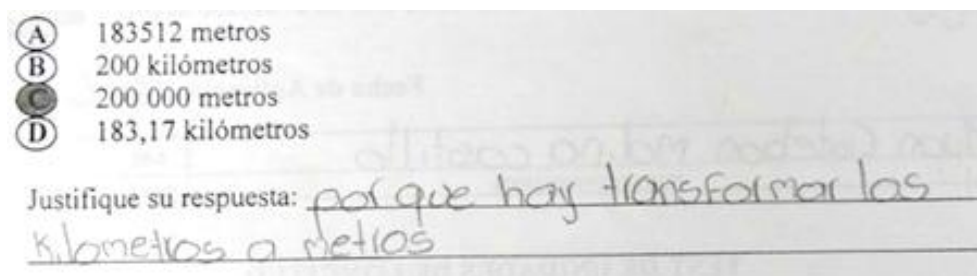 A 183512 metros
B 200 kilómetros
C 200 000 metros
D 183,17 kilómetros
Justifique su respuesta: por que hay transformar los
kilometros a metros